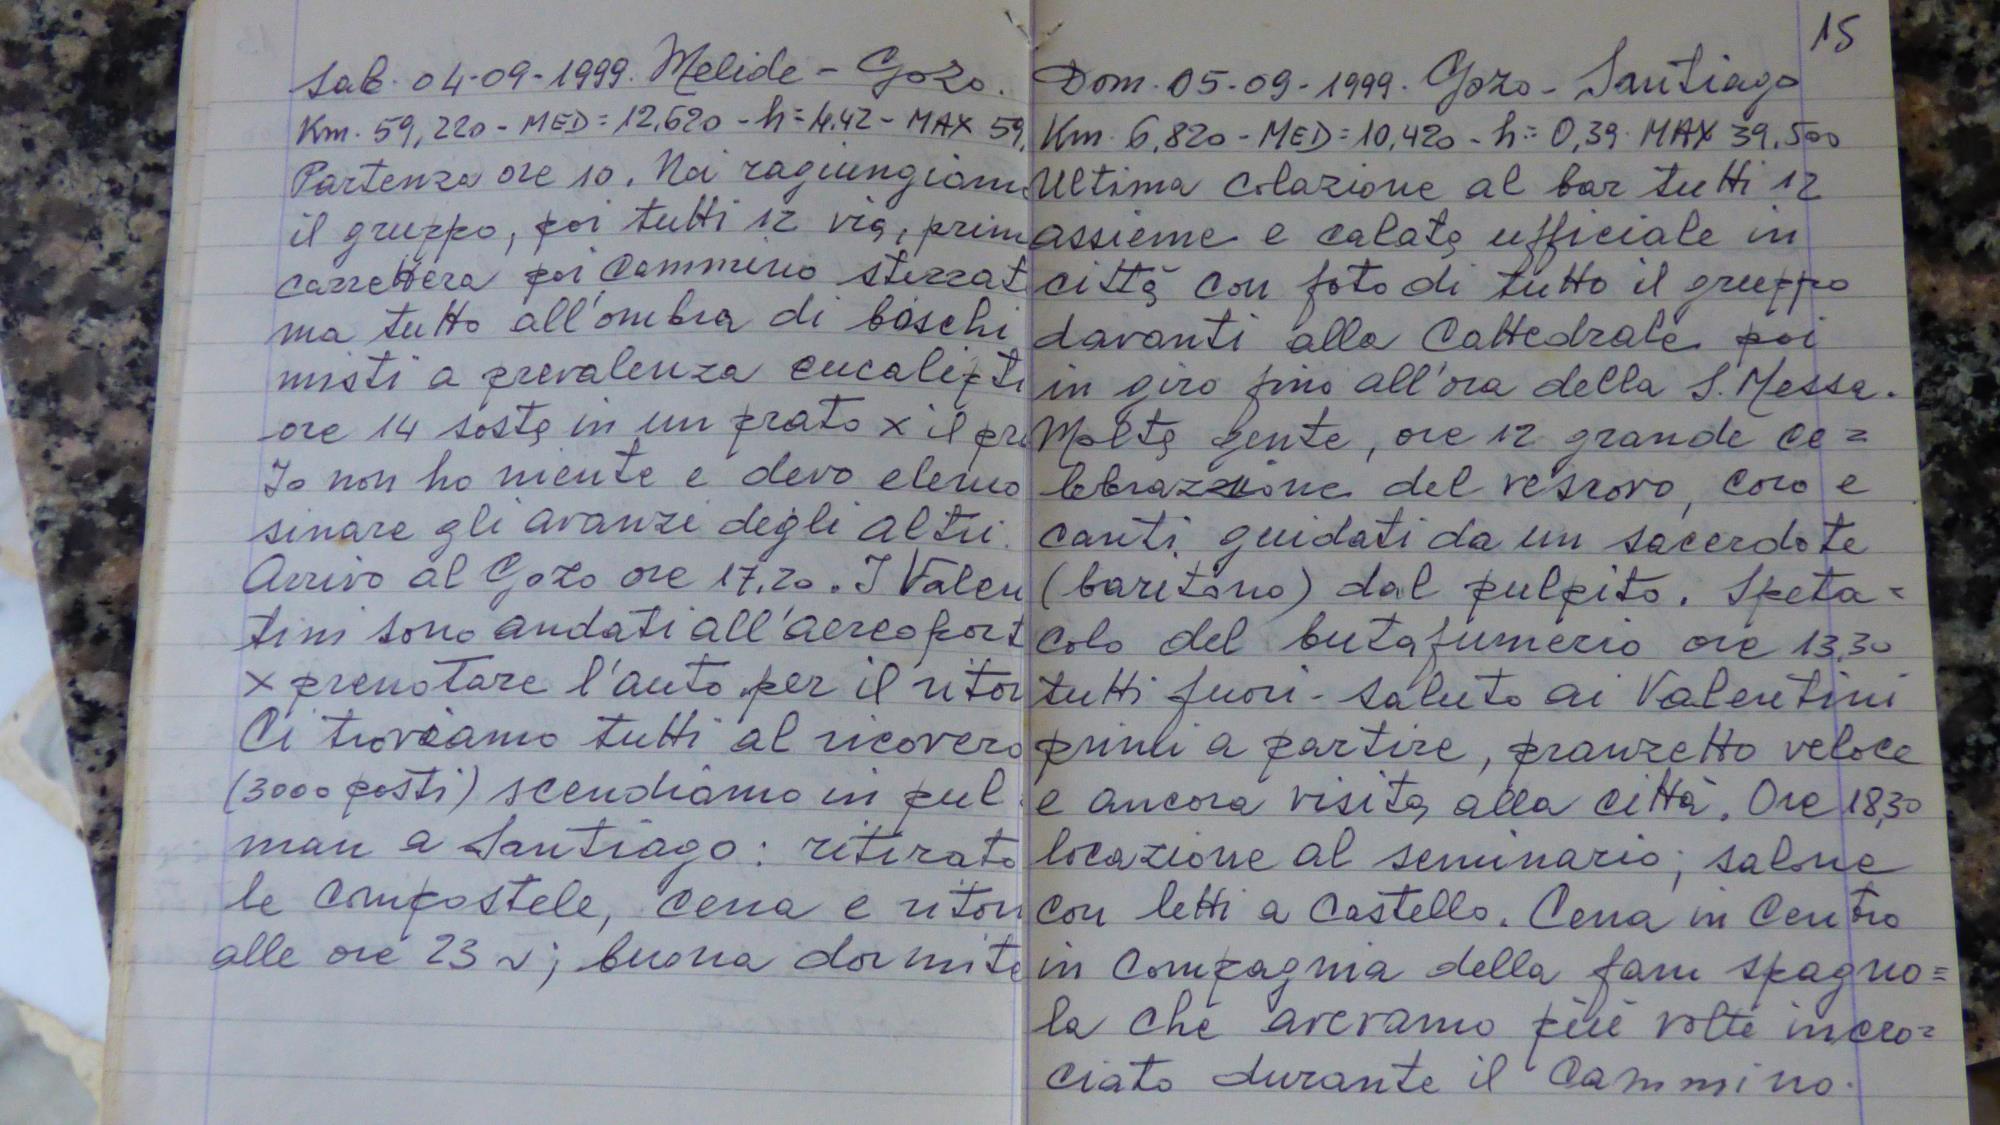 Sab. 04-09-1999. Melide - Gozo.
Km. 59,220 - MED = 12,620 - h = 4.42 - MAX 59,
Partenza ore 10. Noi ragiungiam
il gruppo, poi tutti 12 via, prim
carrettera poi cammino sterrat
ma tutto all'ombra di boschi
misti a prevalenza eucalipti
ore 14 sosta in un prato x il pr
Io non ho niente e devo elemo
sinare gli avanzi degli altri.
Arrivo al Gozo ore 17,20. I Valen
tini sono andati all'aereoport
x prenotare l'auto per il ritor
Ci troviamo tutti al ricovero
(3000 posti) scendiamo in pul
man a Santiago: ritirato
le compostele, cena e ritor
alle ore 23 ~; buona dormite
15
Dom. 05-09-1999. Gozo - Santiago
Km. 6,820 - MED = 10,420 - h = 0,39. MAX 39,500
Ultima colazione al bar tutti 12
assieme e calata ufficiale in
città con foto di tutto il gruppo
davanti alla Cattedrale poi
in giro fino all'ora della S. Messa.
Molta gente, ore 12 grande ce=
lebrazione del vescovo, coro e
canti guidati da un sacerdote
(baritono) dal pulpito. Speta=
colo del butafumerio ore 13,30
tutti fuori - saluto ai Valentini
primi a partire, pranzetto veloce
e ancora visita alla città. Ore 18,30
locazione al seminario; salone
con letti a castello. Cena in Centro
in compagnia della fam spagno=
la che avevamo più volte incro=
ciato durante il Cammino.